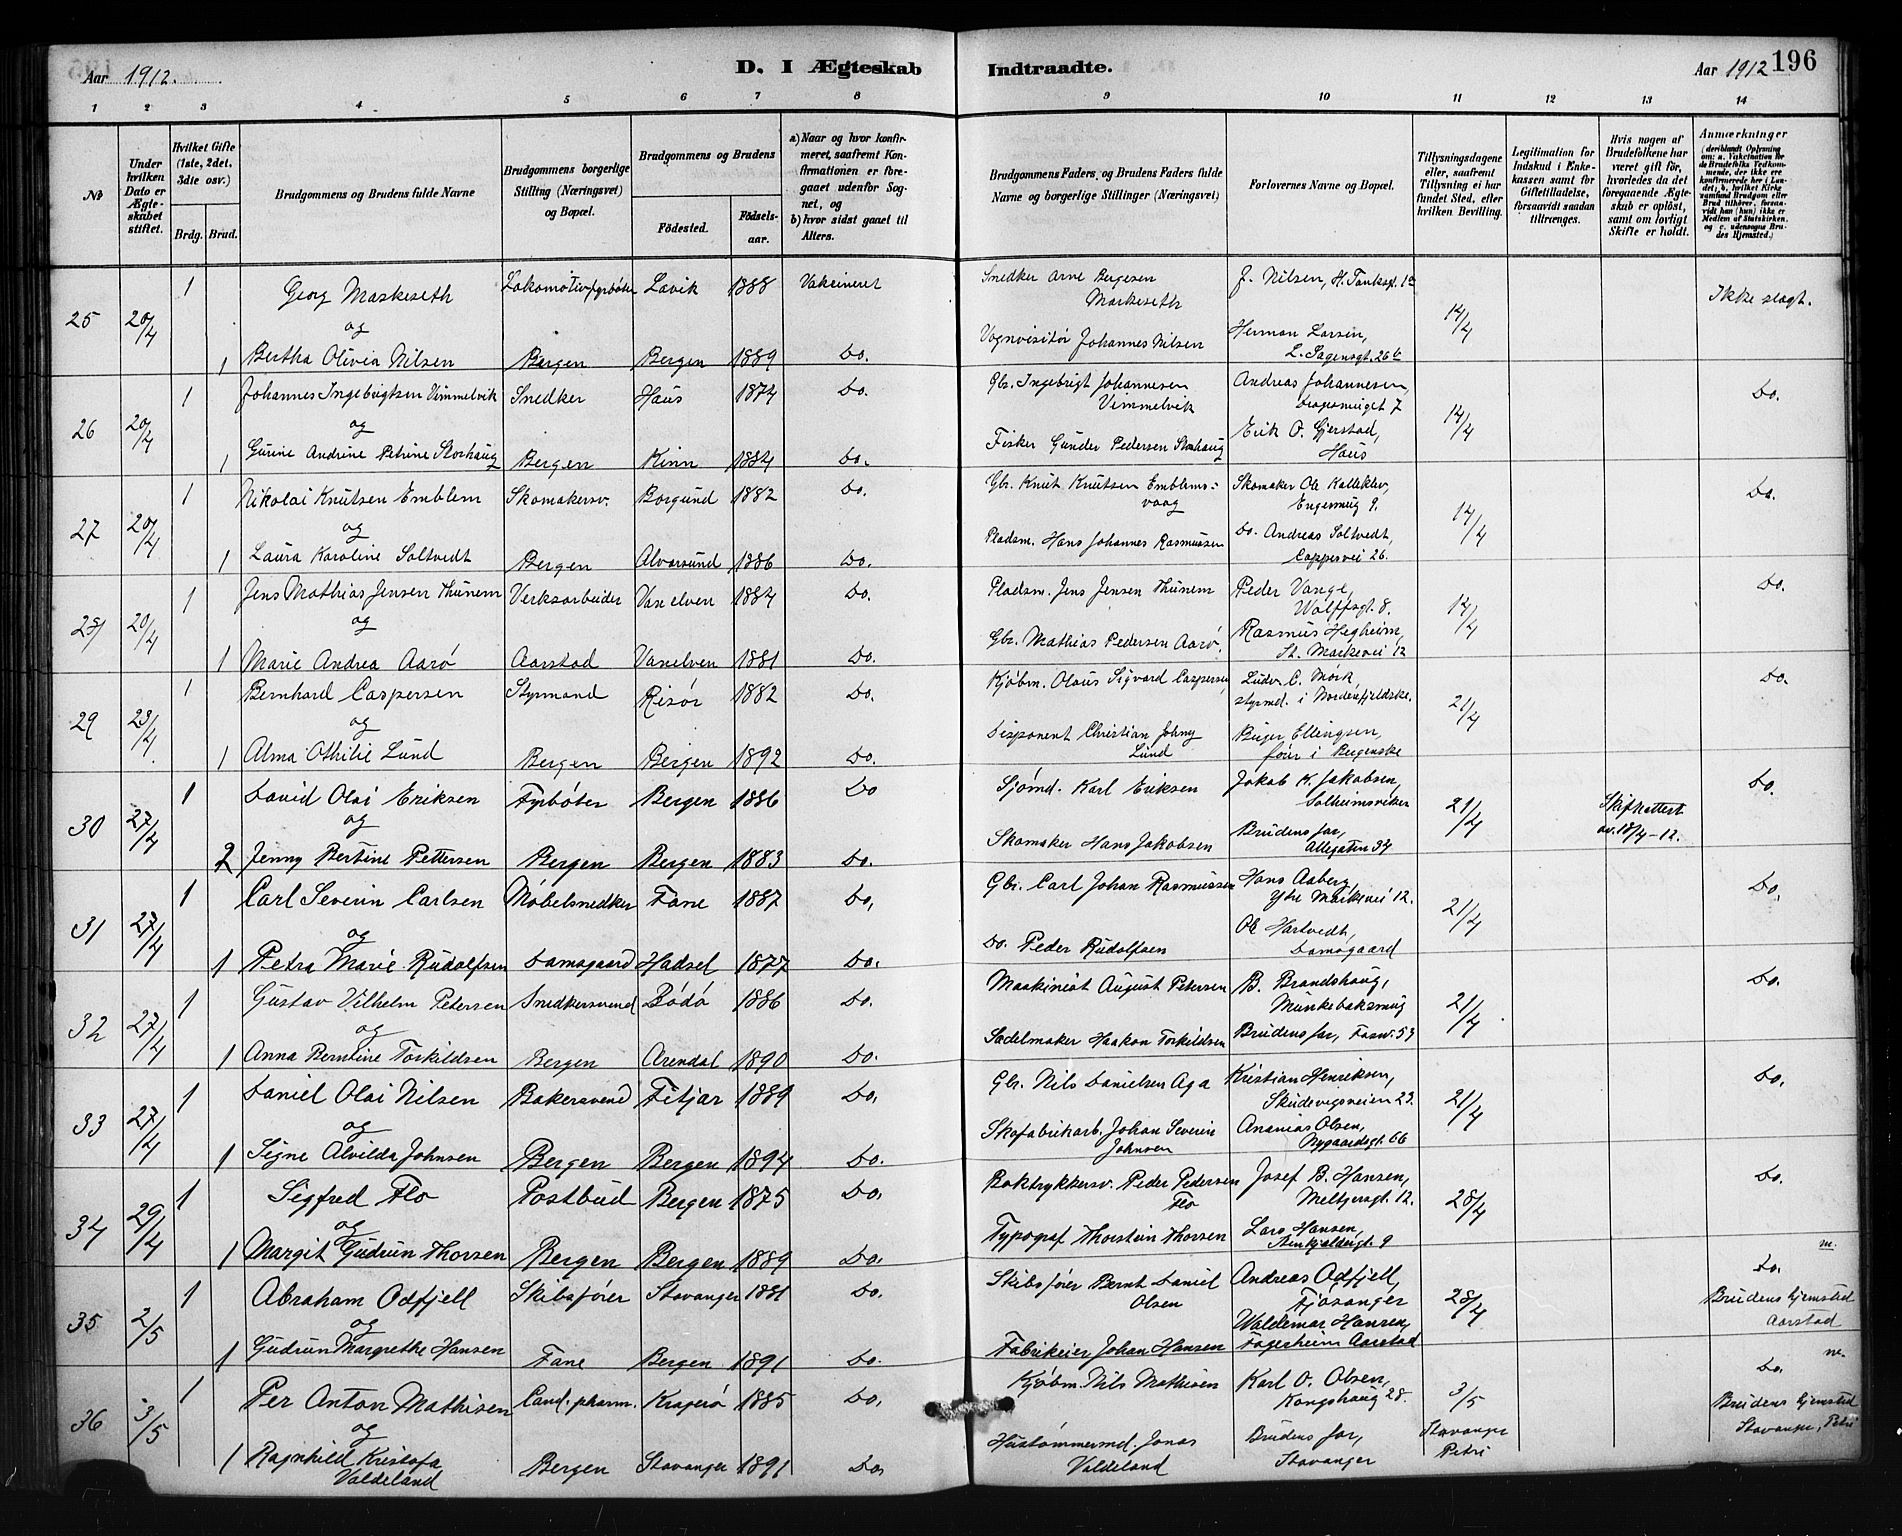 Aar 1912.
D. I Ægteskab Indtraadte.
Aar 1912 196
1 2 3 4 5 6 7 8 9 10 11 12 13 14
No
Under hvilken Dato er Ægteskabet stiftet.
Hvilket Gifte (1ste, 2det, 3dte osv.)
Brdg. Brud.
Brudgommens og Brudens fulde Navne
Brudgommens borgerlige Stilling (Næringsvei) og Bopæl.
Brudgommens og Brudens
Fødested. Fødselsaar.
a) Naar og hvor konfirmeret, saafremt Konfirmationen er foregaaet udenfor Sognet, og
b) hvor sidst gaaet til Alters.
Brudgommens Faders, og Brudens Faders fulde Navne og borgerlige Stillinger (Næringsvei)
Forlovernes Navne og Bopæl.
Tillysningsdagene eller, saafremt Tillysning ei har fundet Sted, efter hvilken Bevilling.
Legitimation for Indskud i Enkekassen samt for Giftetilladelse, forsaavidt saadan tiltrænges.
Hvis nogen af Brudefolkene har været gift før, hvorledes da det foregaaende Ægteskab er opløst, samt om lovligt Skifte er holdt.
Anmærkninger (deriblandt Oplysning om: a. Vakcination for de Brudefolks Vedkommende, der ikke ere konfirmerede her i Landet; b. hvilket Kirkesamfund Brudgom eller Brud tilhører, forsaavidt han (hun) ikke er Medlem af Statskirken, og c. udensogns Brudes Hjemsted.)
25 20/4 1 Georg Maskeseth Lokomotivfyrbøter Lavik 1888 Vakcineret Snedker Arne Bergesen Markeseth J. Nilsen, H. Tanksgt. 1 14/4 Ikke slægt.
og
1 Bertha Olivia Nilsen Bergen Bergen 1889 Do. Vognvisitør Johannes Nilsen Herman Larsen, L. Sagensgt. 26b
26 20/4 1 Johannes Ingebrigtsen Vimmelvik Snedker Haus 1874 Do. Gbr. Ingebrigt Johannesen Vimmelvik Andreas Johannesen, Dragesmuget 7 14/4 Do.
og
1 Gurine Andrine Petrine Storhaug Bergen Kinn 1884 Do. Fisker Gunder Pedersen Storhaug Erik O. Gjerstad, Haus
27 20/4 1 Nikolai Knutsen Emblem Skomakersv. Borgund 1882 Do. Gbr. Knut Knutsen Emblemsvaag Skomaker Ole Kalleklev, Engesmug 9. 14/4 Do.
og
1 Laura Karoline Soltvedt Bergen Alversund 1886 Do. Pladsm. Hans Johannes Rasmussen Do. Andreas Soltvedt, Cappesvei 26.
28 20/4 1 Jens Mathias Jensen Thunem Verksarbeider Vanelven 1884 Do. Pladsm. Jens Jensen Thunem Peder Vange, Wolffsgt. 8. 14/4 Do.
og
1 Marie Andrea Aarø Aarstad Vanelven 1881 Do. Gbr. Mathias Pedersen Aarø. Rasmus Hegheim, St. Markevei 12
29 23/4 1 Bernhard Caspersen Styrmand Risør 1882 Do. Kjøbm. Olaus Sigvard Caspersen Luder C. Mørk, styrmd. i Nordenfjeldske. 21/4 Do.
og
1 Alma Othilie Lund Bergen Bergen 1892 Do. Disponent Christian Johny Lund Birger Ellingsen, fører i Bergenske
30 27/4 1 David Olai Eriksen Fyrbøter Bergen 1886 Do Sjømd. Karl Eriksen Jakob K. Jakobsen, Solheimsviken 21/4 Skifteattest av 18/4-12. Do.
og
2 Jenny Bertine Pettersen Bergen Bergen 1883 Do. Skomaker Hans Jakobsen Brudens far, Allegaten 34
31 27/4 1 Carl Severin Carlsen Møbelsnedker Fane 1887 Do, Gbr. Carl Johan Rasmussen Hans Aaberg, Ytre Markevei 12. 21/4 Do,
og
1 Petra Marie Rudolfsen Damsgaard Hadsel 1877 Do. Do. Peder Rudolfsen Ole Hartvedt, Damsgaard
32 27/4 1 Gustav Vilhelm Petersen Snedkersvend Bodø 1886 Do. Maskinist August Petersen B. Brandshaug, Munkebaksmug 21/4 Do.
og
1 Anna Berntine Torkildsen Bergen Arendal 1890 Do. Sadelmaker Haakon Torkildsen Brudens far, Fosw. 53
33 27/4 1 Daniel Olai Nilsen Bakersvend Fitjar 1889 Do, Gbr. Nils Danielsen Aga Kristian Henriksen, Skudevigsveien 23. 21/4 Do,
og
1 Signe Alvilda Johnsen Bergen Bergen 1894 Do. Skofabrikarb. Johan Severin Johnsen Ananias Olsen, Nygaardsgt. 66
34 29/4 1 Sigfred Flo Postbud Bergen 1875 Do, Boktrykkersv. Peder Pedersen Flo Josef B. Hansen, Meltzersgt. 12. 28/4 Do.
og
1 Margit Gudrun Thorsen Bergen Bergen 1889 Do, Typograf Thorstein Thorsen Lars Hansen, Stenkjeldergt. 9
35 2/5 1 Abraham Odfjell Skibsfører Stavanger 1881 Do. Skibsfører Bernt Daniel Olsen Andreas Odfjell, Fjøsanger 28/4 m. Do, Brudens hjemsted Aarstad
og
1 Gudrun Margrethe Hansen Fane Bergen 1891 Do. Fabrikeier Johan Hansen Waldemar Hansen, Fagerheim Aarstad
36 3/5 1 Per Anton Mathisen Cand. pharm. Kragerø 1885 Do, Kjøbm. Nils Mathisen Karl O. Olsen, Kongshaug 28. 3/5 Stavanger Petri m. Do. Brudens hjemsted Stavanger, Petri
og
1 Ragnhild Kristofa Valdeland Bergen Stavanger 1891 Do, Hustømmermd. Jonas Valdeland Brudens far, Stavanger